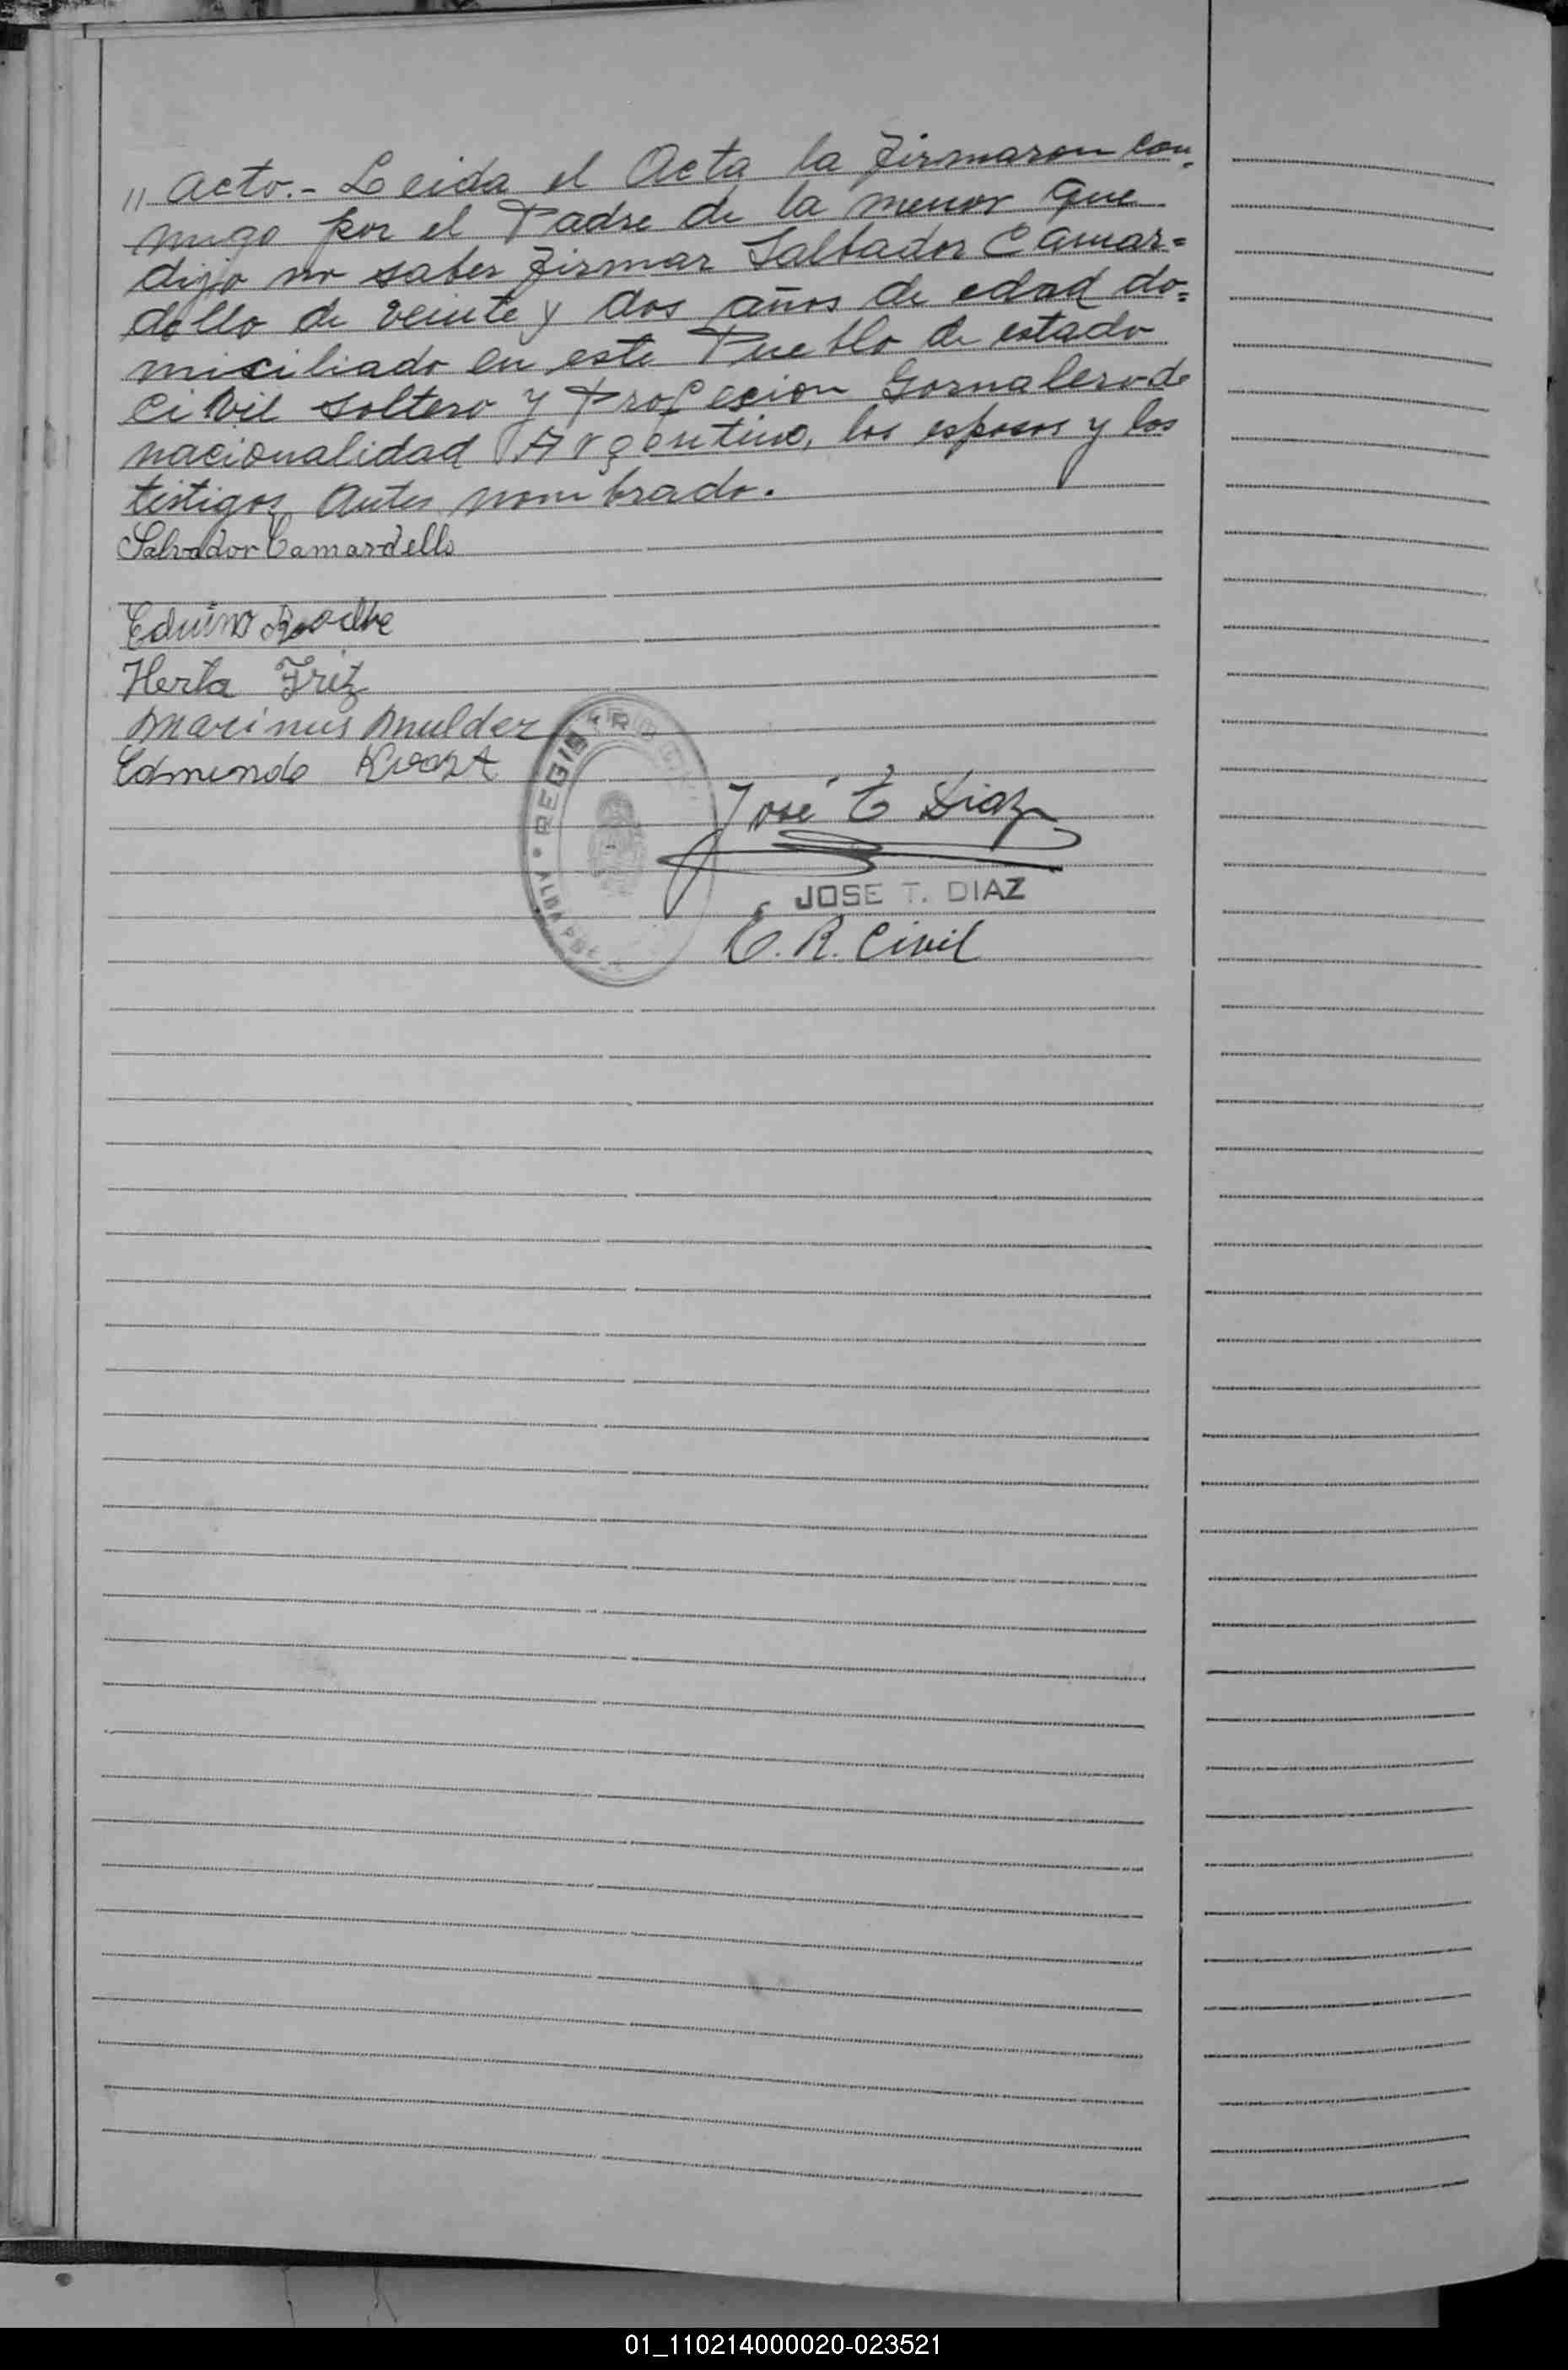 " acto.- Leida el Acta la firmaron con-
migo por el Padre de la menor que
dijo no saber firmar Salbador Camar=
dello de veinte y dos años de edad do=
miciliado en este Pueblo de estado
Civil soltero y Profecion Gornalero de
nacionalidad Argentino, los esposos y los
testigos Antes nombrado.
Salvador Camardello
Eduino
Herta Fritz
Marinus Mulder
Edmundo
REGISTRO CIVIL
ALBA POSSE
José T Diaz
JOSE T. DIAZ
E. R. Civil
01_110214000020-023521